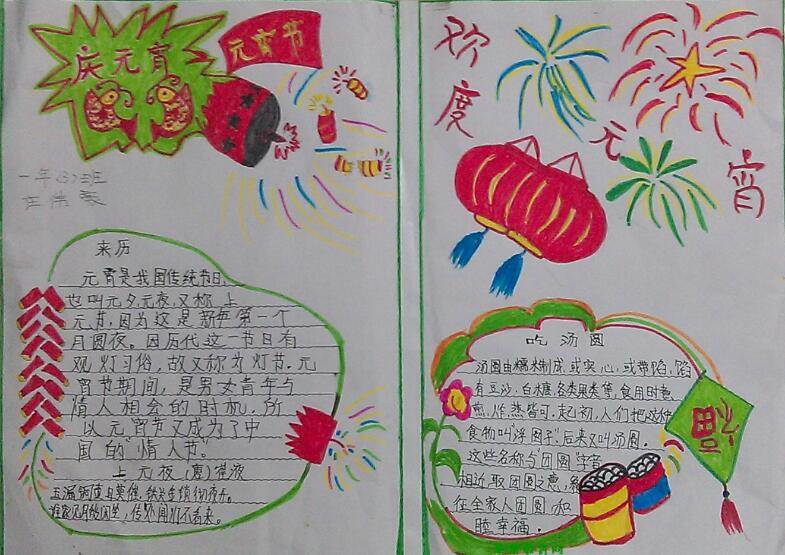 庆元宵
元宵节
一年(3)班
来历
元宵是我国传统节日,
也叫元夕、元夜,又称上
元节,因为这是新年第一个
月圆夜。因历代这一节日有
观灯习俗,故又称为灯节。元
宵节期间,是男女青年与
情人相会的时机,所
以元宵节又成为了中
国的“情人节”。
上元夜(唐)崔液
玉漏铜壶且莫催,铁关金锁彻夜开。
谁家见月能闲坐,何处闻灯不看来。
欢度元宵
吃汤圆
汤圆由糯米制成,或实心,或带馅。馅
有豆沙、白糖、各类果类等,食用时煮、
煎、炸、蒸皆可。起初,人们把这种
食物叫“浮圆子”后来又叫汤圆。
这些名称与“团圆”字音
相近,取团圆之意,
在全家人团圆,和
睦幸福。
福